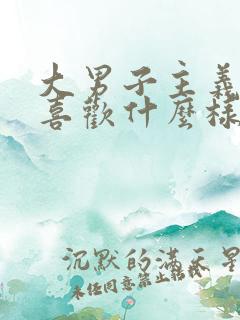 大男子主義
喜歡什麼樣
沉默的滿天星
未经同意禁止転载